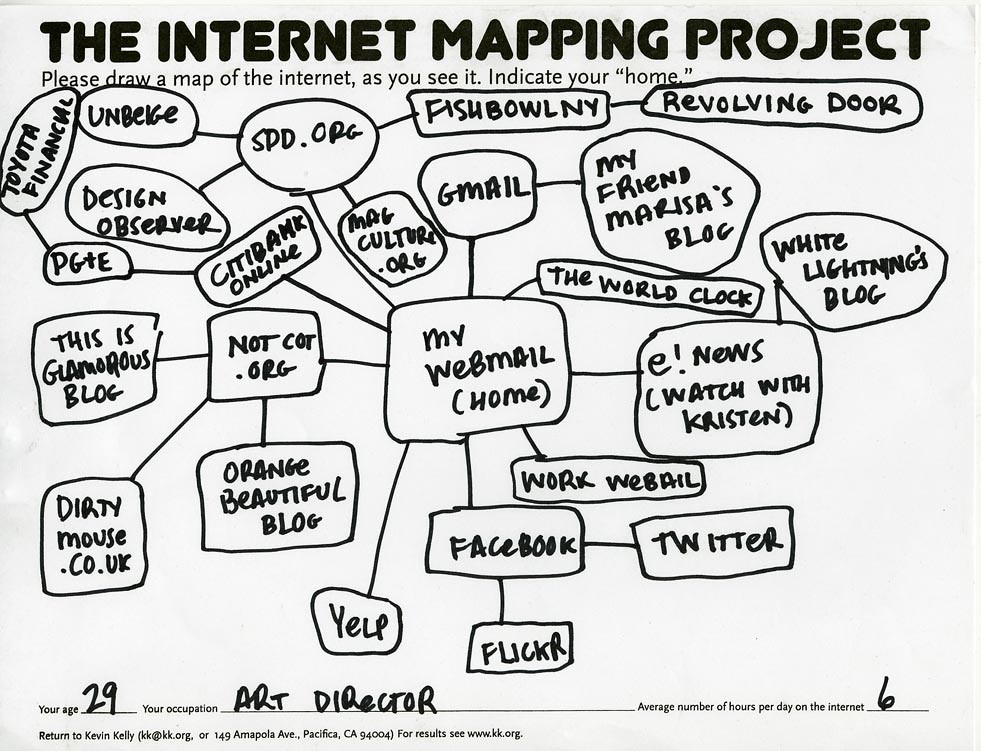 THE INTERNET MAPPING PROJECT
Please draw a map of the internet, as you see it. Indicate your "home."
TOYOTA
FINANCIAL
UNBEIGE
SPD.ORG
FISHBOWLNY
REVOLVING DOOR
DESIGN
OBSERVER
MAG
CULTURE
.ORG
GMAIL
MY
FRIEND
MARISA'S
BLOG
PG+E
CITIBANK
ONLINE
THE WORLD CLOCK
WHITE
LIGHTNING'S
BLOG
THIS IS
GLAMOROUS
BLOG
NOT COT
.ORG
MY
WEBMAIL
(HOME)
e! NEWS
(WATCH WITH
KRISTEN)
DIRTY
MOUSE
.CO.UK
ORANGE
BEAUTIFUL
BLOG
WORK WEBAIL
FACEBOOK
TWITTER
YELP
FLICKR
Your age 29 Your occupation ART DIRECTOR Average number of hours per day on the internet 6
Return to Kevin Kelly (kk@kk.org, or 149 Amapola Ave., Pacifica, CA 94004) For results see www.kk.org.